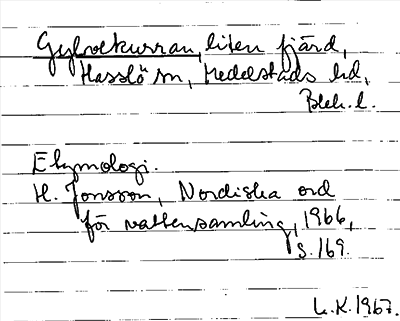 Gylvekurran, liten fjärd,
Hasslö sn, Medelstads hd,
Blek. l.
Etymologi.
H. Jonsson, Nordiska ord
för vattensamling, 1966,
s. 169.
L.K. 1967.